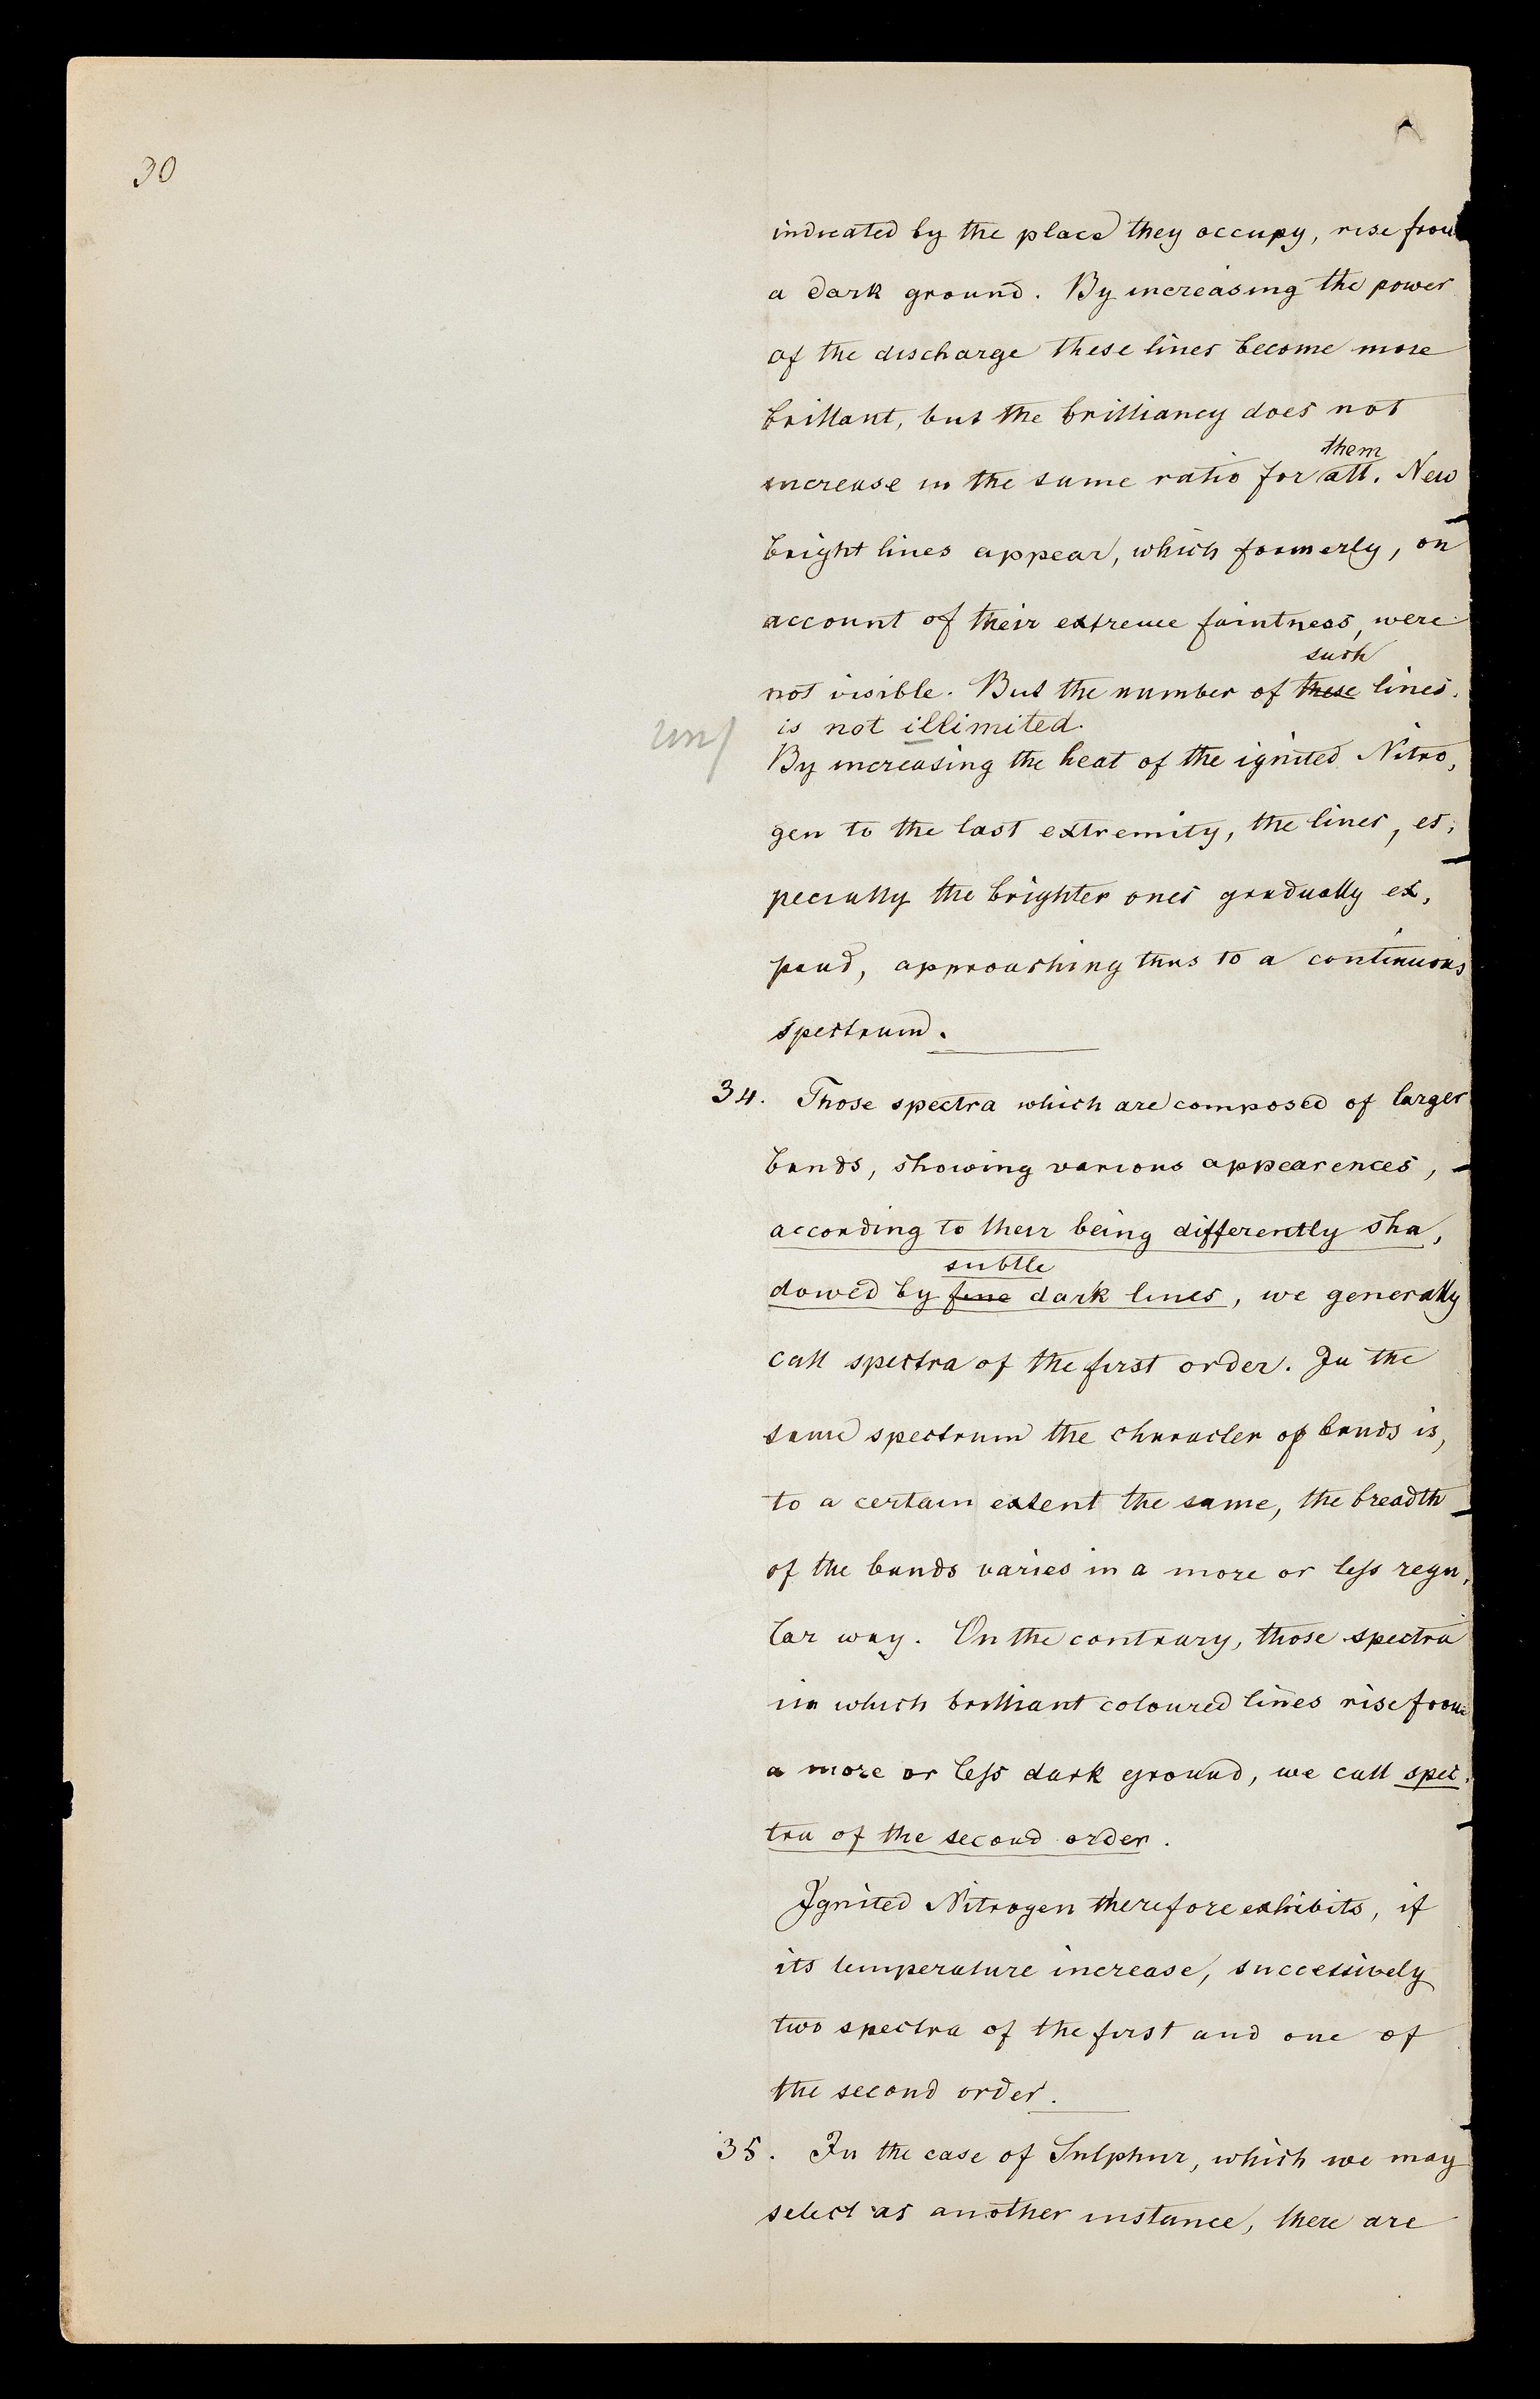 30
indicated by the place they occupy, rise from
a dark ground. By increasing the power
of the discharge these lines become more
brillant, but the brilliancy does not
them
increase in the same ratio for all. New
bright lines appear, which formerly, on
account of their extreme faintness, were
such
not visible. But the number of these lines.
un/ is not illimited.
By increasing the heat of the ignited Nitro,
gen to the last extremity, the lines, es,
pecially the brighter ones gradually ex,
pand, approaching thus to a continuous
spectrum.
34. Those spectra which are composed of larger
bands, showing various appearences,
according to their being differently sha,
subtle
dowed by fine dark lines, we generally
call spectra of the first order. In the
same spectrum the character of bands is,
to a certain extent the same, the breadth
of the bands varies in a more or less regu,
lar way. On the contrary, those spectra
in which brilliant coloured lines rise from
a more or less dark ground, we call spec,
tra of the second order.
Ignited Nitrogen therefore exhibits, if
its temperature increase, successively
two spectra of the first and one of
the second order.
35. In the case of Sulphur, which we may
select as another instance, there are